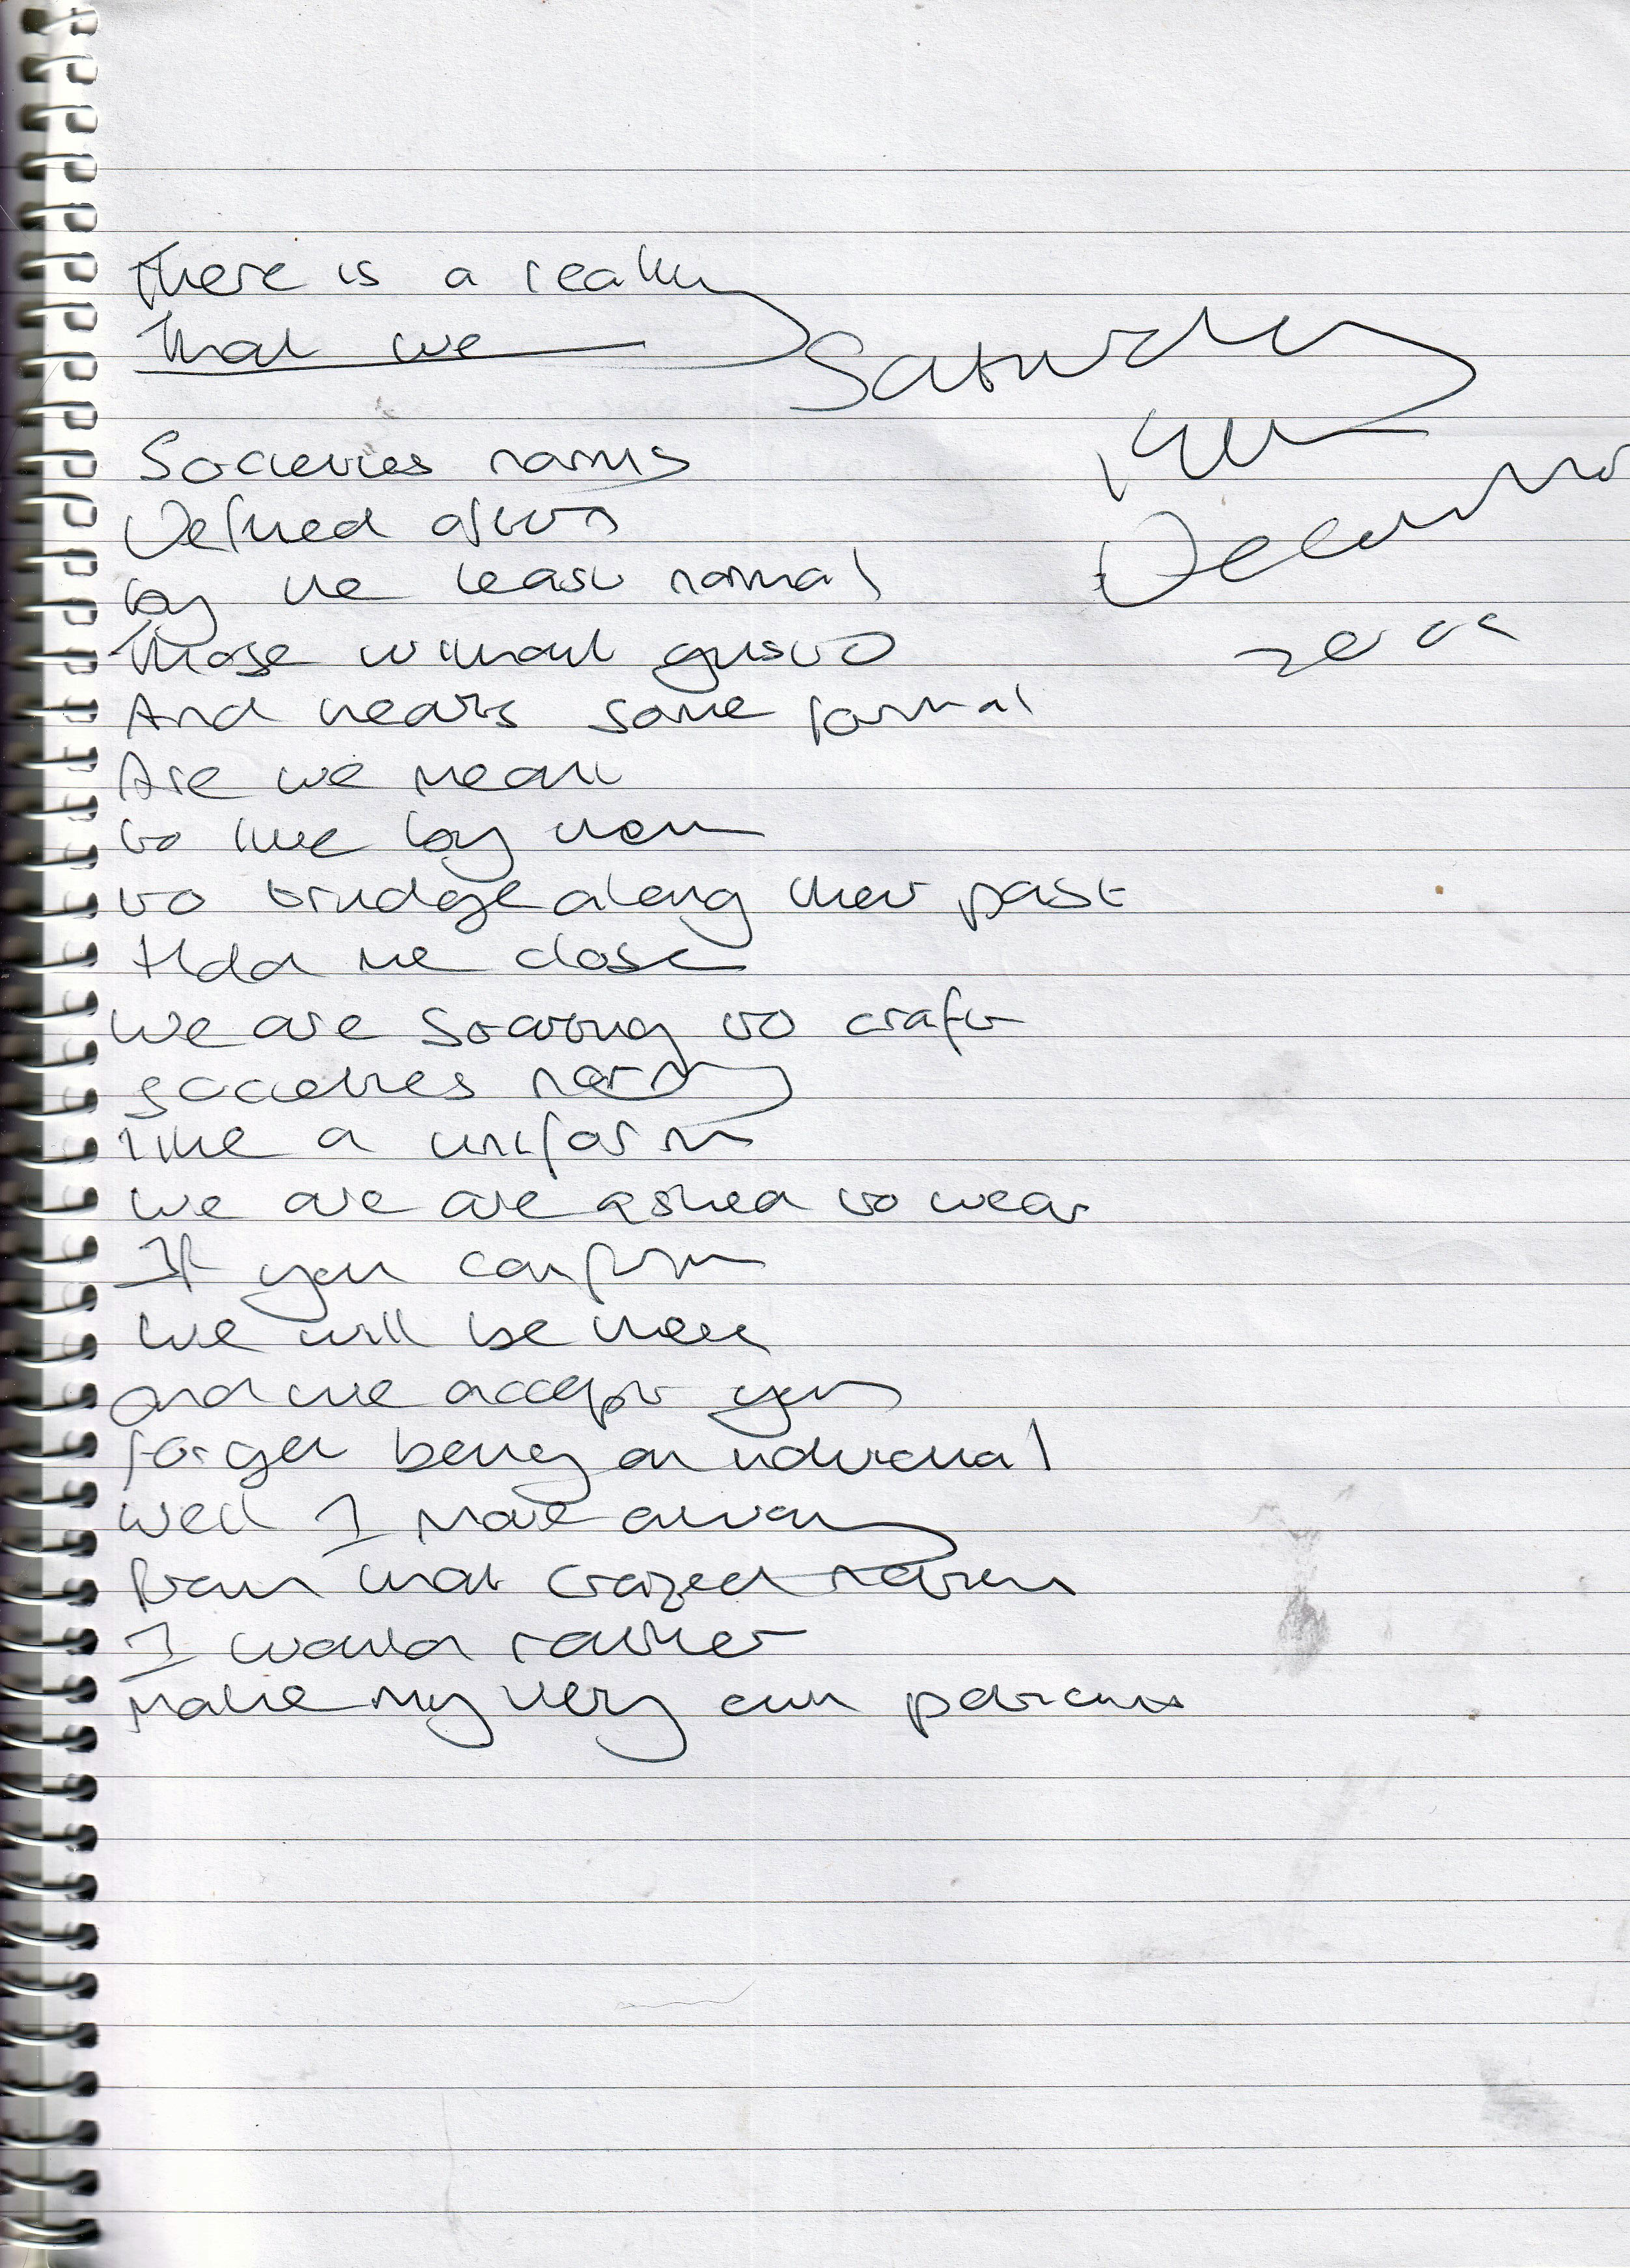 There is a reality
That we
Saturday
December
Societies norms
Defined often
by the least normal
Those without gusto
And hearts some formal
Are we meant
to live by them
to trudge along their past
Hold me close
We are starting to craft
societies norm
like a uniform
we are are asked to wear
If you conform
We will be there
and we accept you
forget being an individual
Well I move away
from that crazed
I would rather
make my very own patterns